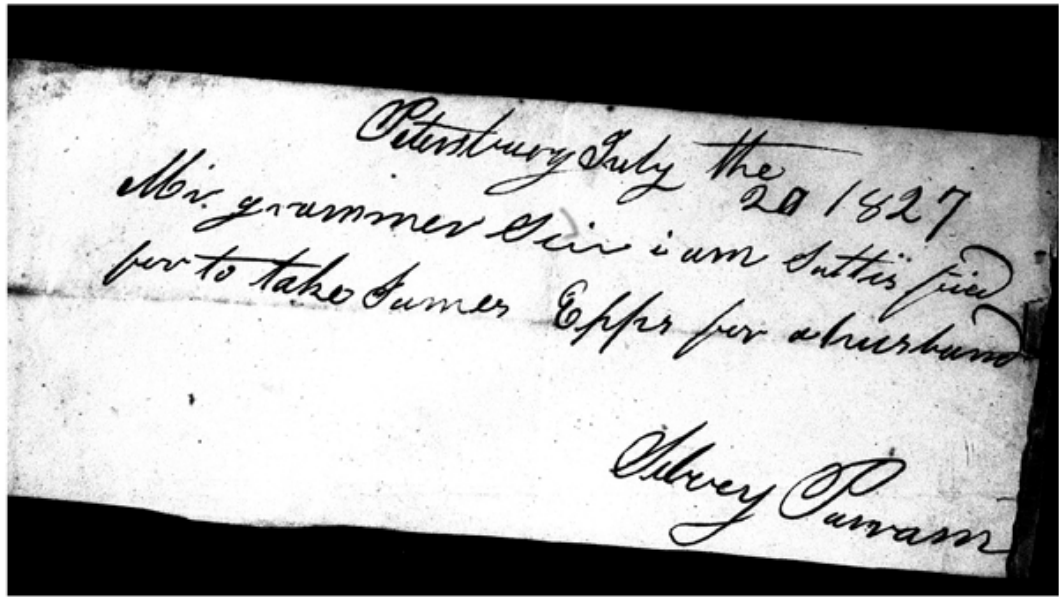 Petersburg July the 20 1827
Mr. grammer Seir i am Sattis fied
for to take James Epps for a husband
Silvey Parram